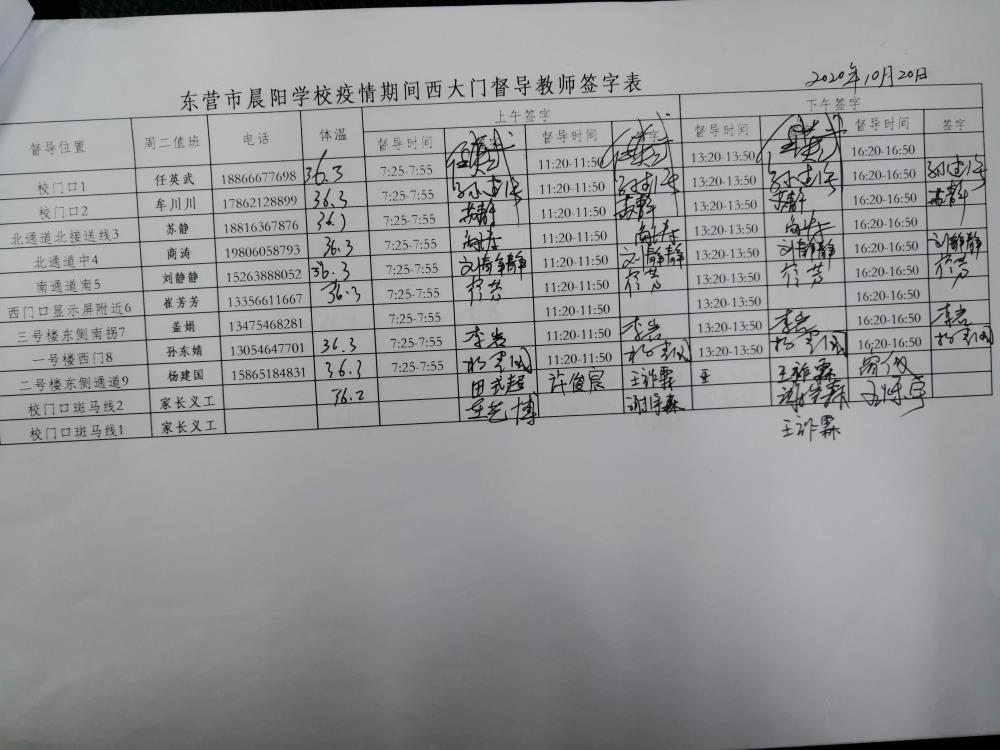 东营市晨阳学校疫情期间西大门督导教师签字表
2020年10月20日
督导位置 周二值班 电话 体温 上午签字 下午签字
督导时间 签字 督导时间 签字 督导时间 签字 督导时间 签字
校门口1 任英武 18866677698 36.3 7:25-7:55 任英武 11:20-11:50 任英武 13:20-13:50 任英武 16:20-16:50
校门口2 牟川川 17862128899 36.3 7:25-7:55 11:20-11:50 13:20-13:50 16:20-16:50
北通道北接送线3 苏静 18816367876 36.3 7:25-7:55 苏静 11:20-11:50 苏静 13:20-13:50 苏静 16:20-16:50 苏静
北通道中4 商涛 19806058793 36.3 7:25-7:55 商涛 11:20-11:50 商涛 13:20-13:50 商涛 16:20-16:50
南通道南5 刘静静 15263888052 36.3 7:25-7:55 刘静静 11:20-11:50 刘静静 13:20-13:50 刘静静 16:20-16:50 刘静静
西门口显示屏附近6 崔芳芳 13356611667 36.3 7:25-7:55 11:20-11:50 13:20-13:50 16:20-16:50
三号楼东侧南拐7 孟娟 13475468281 7:25-7:55 11:20-11:50 13:20-13:50 16:20-16:50
一号楼西门8 孙东婧 13054647701 36.3 7:25-7:55 11:20-11:50 13:20-13:50 16:20-16:50
二号楼东侧通道9 杨建国 15865184831 36.3 7:25-7:55 杨建国 11:20-11:50 杨建国 13:20-13:50 杨建国 16:20-16:50 杨建国
校门口斑马线2 家长义工 36.2 田武超 许俊晨 王祚霖 王 王祚霖
校门口斑马线1 家长义工 谢宇森
王祚霖